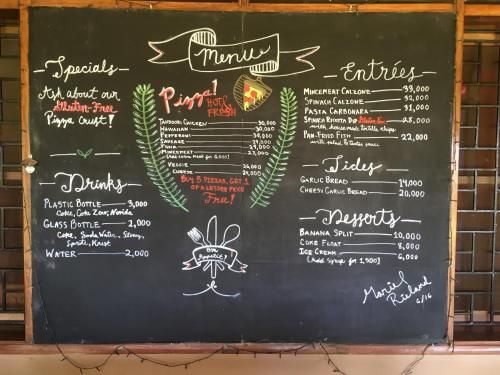 Menu
Specials
Ask about our
Gluten-Free
Pizza crust!
Drinks
Plastic Bottle 3,000
Coke, Coke Zero, Novida
Glass Bottle 2,000
Coke, Soda Water, Stoney,
Sprite, Krest
Water 2,000
Pizza!
Hot & Fresh
Tandoori Chicken 30,000
Hawaiian 30,000
Pepperoni 30,000
Sausage 29,000
Tuna
Mincemeat 27,000
(Add extra meat for 6,500)
Veggie 26,000
Cheese 24,000
Buy 5 pizzas, get 1
of a lesser price
Free!
Bon
Appetit!
Entrées
Mincemeat Calzone 33,000
Spinach Calzone 32,000
Pasta Carbonara 31,000
Spinach Ricotta Dip Gluten Free 28,000
with housemade tortilla chips
Pan-Fried Fish 22,000
with salad & tartar sauce
Sides
Garlic Bread 14,000
Cheesy Garlic Bread 20,000
Desserts
Banana Split 10,000
Coke Float 8,000
Ice Cream 6,000
[Add syrup for 1,500]
6/16